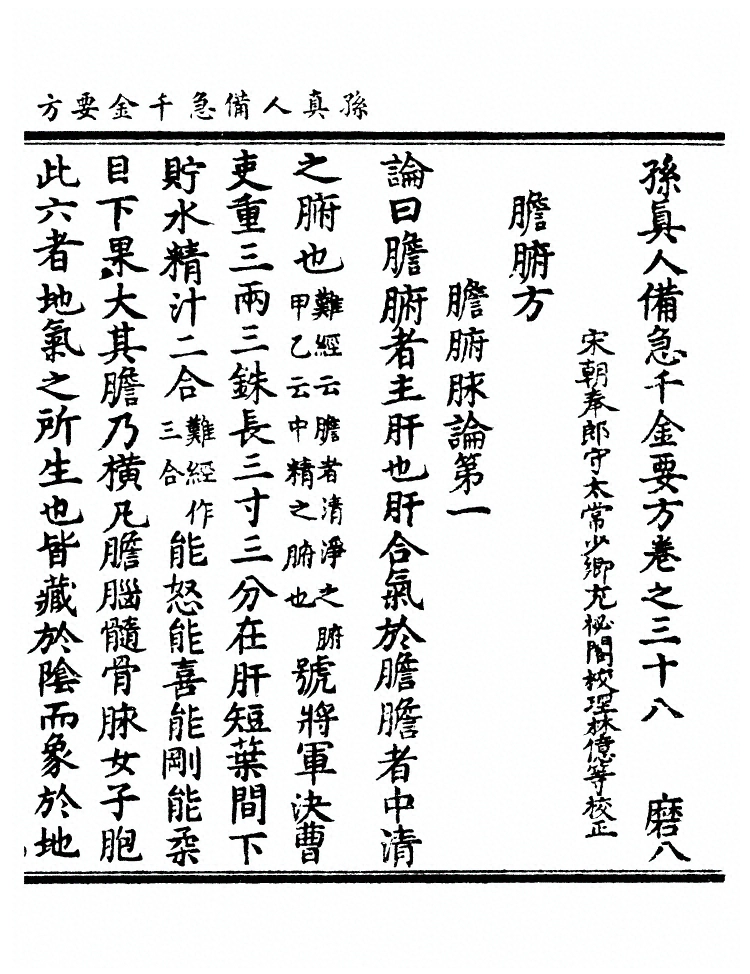 孫真人備急千金要方
孫眞人備急千金要方卷之三十八　磨八
宋朝奉郎守太常少卿充祕閣校理林億等校正
膽腑方
膽腑脉論第一
論曰膽腑者主肝也肝合氣於膽膽者中清
之腑也難經云膽者清淨之腑甲乙云中精之腑也號將軍決曹
吏重三兩三銖長三寸三分在肝短葉間下
貯水精汁二合難經作三合能怒能喜能剛能柔
目下果大其膽乃橫凡膽腦髓骨脉女子胞
此六者地氣之所生也皆藏於陰而象於地